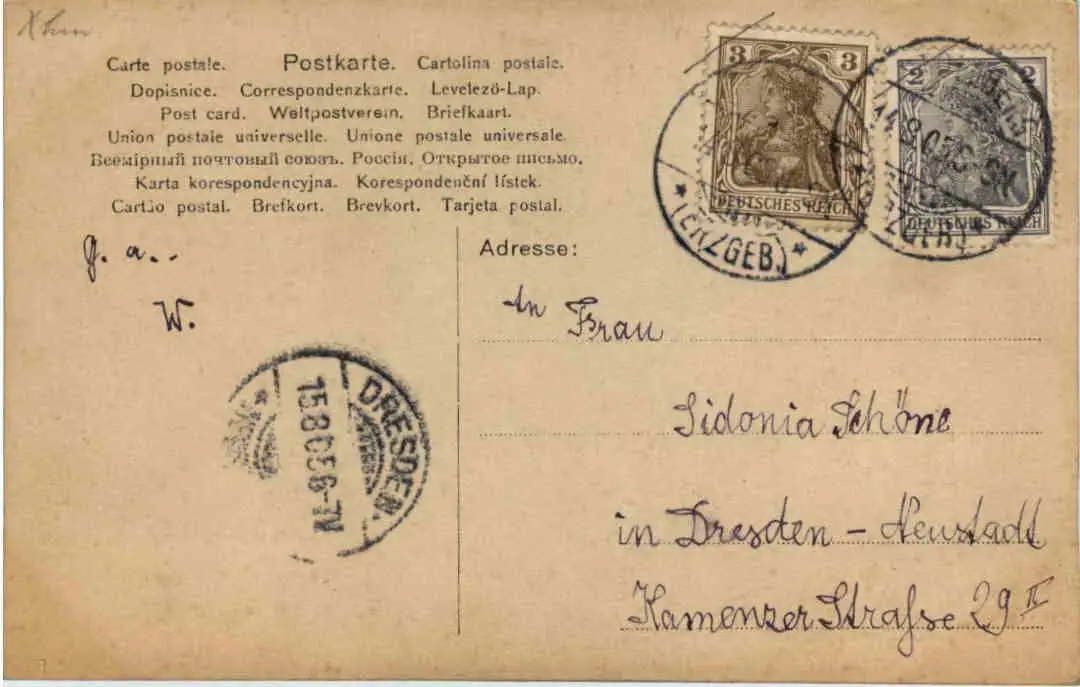 Carte postale. Postkarte. Cartolina postale.
Dopisnice. Correspondenzkarte. Levelező-Lap.
Post card. Weltpostverein. Briefkaart.
Union postale universelle. Unione postale universale.
Всемірный почтовый союзъ. Россія. Открытое письмо.
Karta korespondencyjna. Korespondenční lístek.
Cartão postal. Brefkort. Brevkort. Tarjeta postal.
3 3
DEUTSCHES REICH
2 2
DEUTSCHES REICH
(ERZGEB.)
g. a..
W.
DRESDEN.
15.8.05.6-7V
Adresse:
An Frau
Sidonia Schöne
in Dresden - Neustadt
Kamenzer Straße 29 II